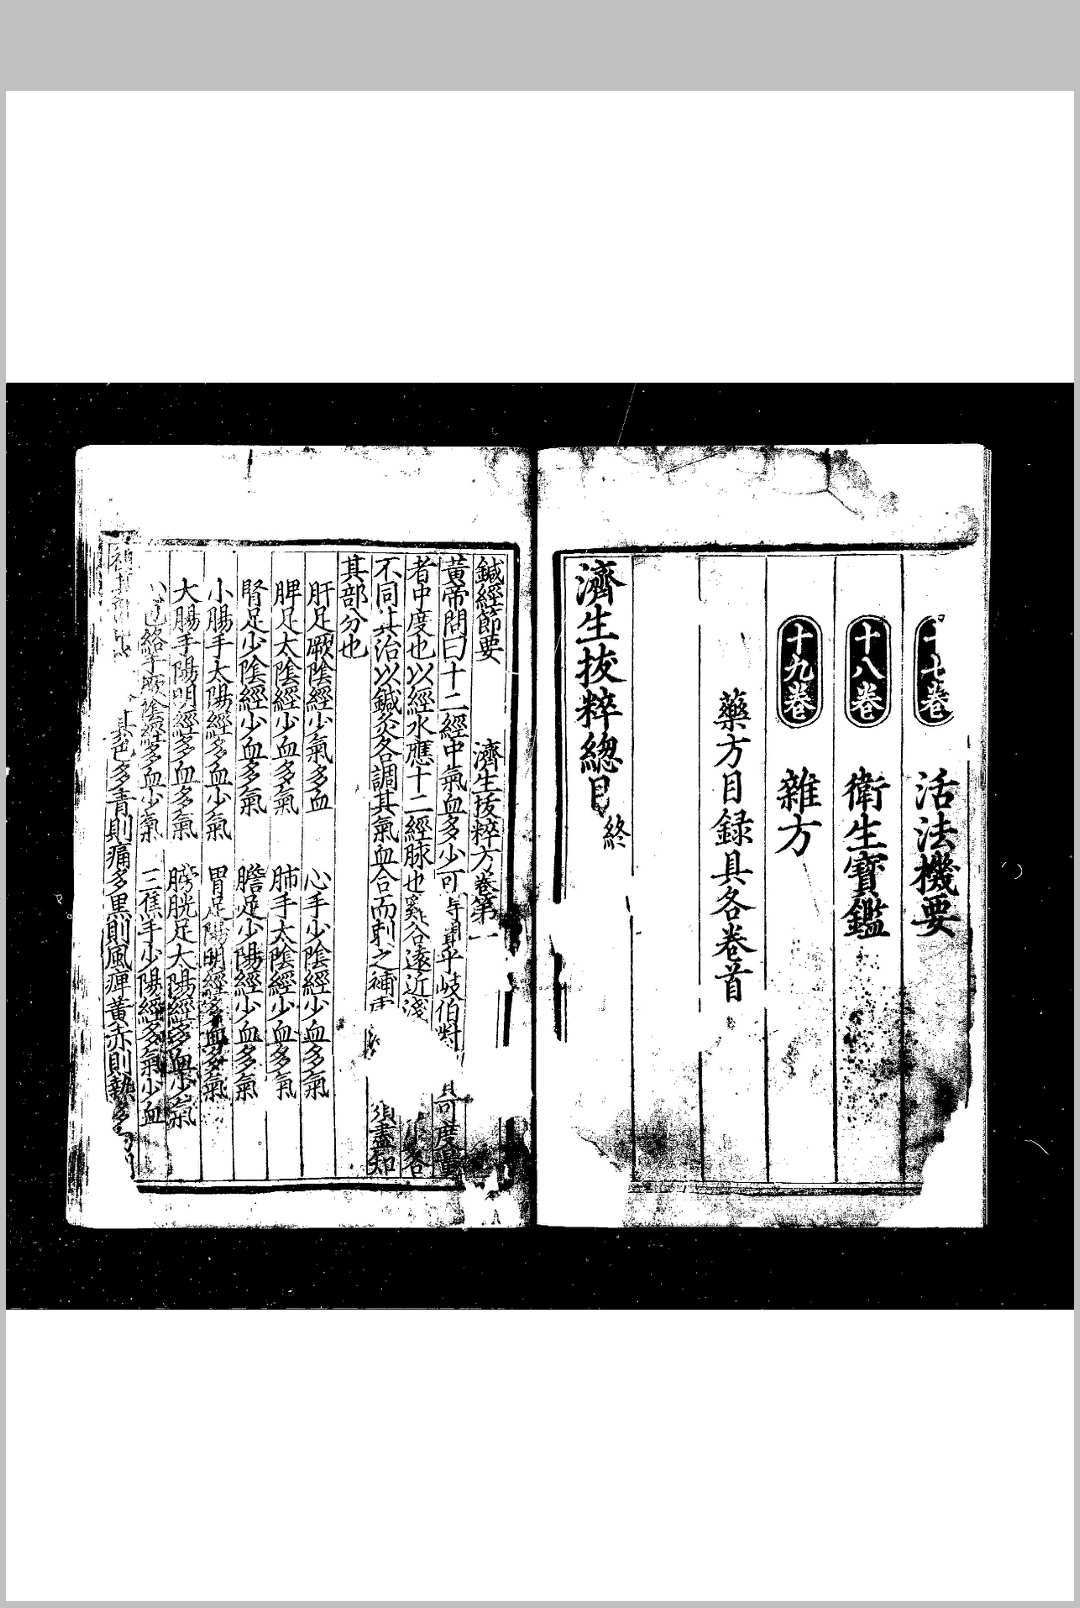 十七卷 活法機要
十八卷 衛生寶鑑
十九卷 雜方
藥方目録具各卷首
濟生拔粹總目終
鍼經節要 濟生拔粹方卷第一
黃帝問曰十二經中氣血多少可 乎岐伯對 其可度量
者中度也以經水應十二經脉也谿谷遠近淺
不同其治以鍼灸各調其氣血合而刺之補 須盡知
其部分也
肝足厥陰經少氣多血 心手少陰經少血多氣
脾足太陰經少血多氣 肺手太陰經少血多氣
腎足少陰經少血多氣 膽足少陽經少血多氣
小腸手太陽經多血少氣 胃足陽明經多血多氣
大腸手陽明經多血多氣 膀胱足太陽經多血少氣
包絡手厥陰經多血少氣 三焦手少陽經多氣少血
其色多青則痛多黑則風痺黃赤則熱多